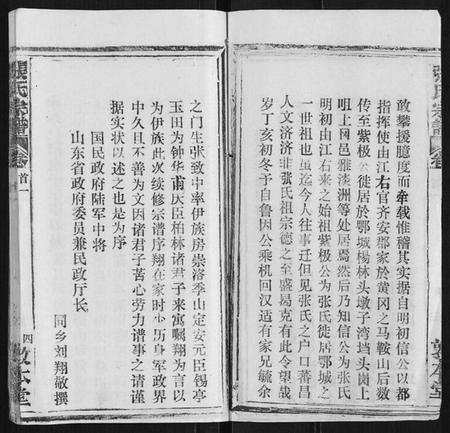 張氏宗譜 卷
敢攀援臆度而牵载惟稽其实据自明初信公以都
指挥使由江右官齐安郡家於黄冈之马鞍山后数
传至紫极公徙居於鄂城杨林头墩子湾垱头岗上
咀上冈邑雅淡洲等处居焉然后乃知信公为张氏
明初由江右来之始祖紫极公为张氏徙居鄂城之
一世祖也虽迄今人往事迁但见张氏之户口蕃昌
人文济济非张氏祖宗德之至盛曷克有此令望哉
岁丁亥初冬予自鲁因公乘机回汉适有家兄毓余
敦本堂
之门生张致中率伊族房崇洛季山定安元臣锡亭
玉田为钟华甫庆臣柏林诸君子来寓嘱翔为言以
为伊族此次续修宗谱序翔在家时少历身军政界
中久且不善为文因诸君子苦心劳力谱事之请谨
据实状以述之也是为序
国民政府陆军中将
山东省政府委员兼民政厅长
同乡刘翔敬撰
張氏宗譜 卷首一
四 敦本堂